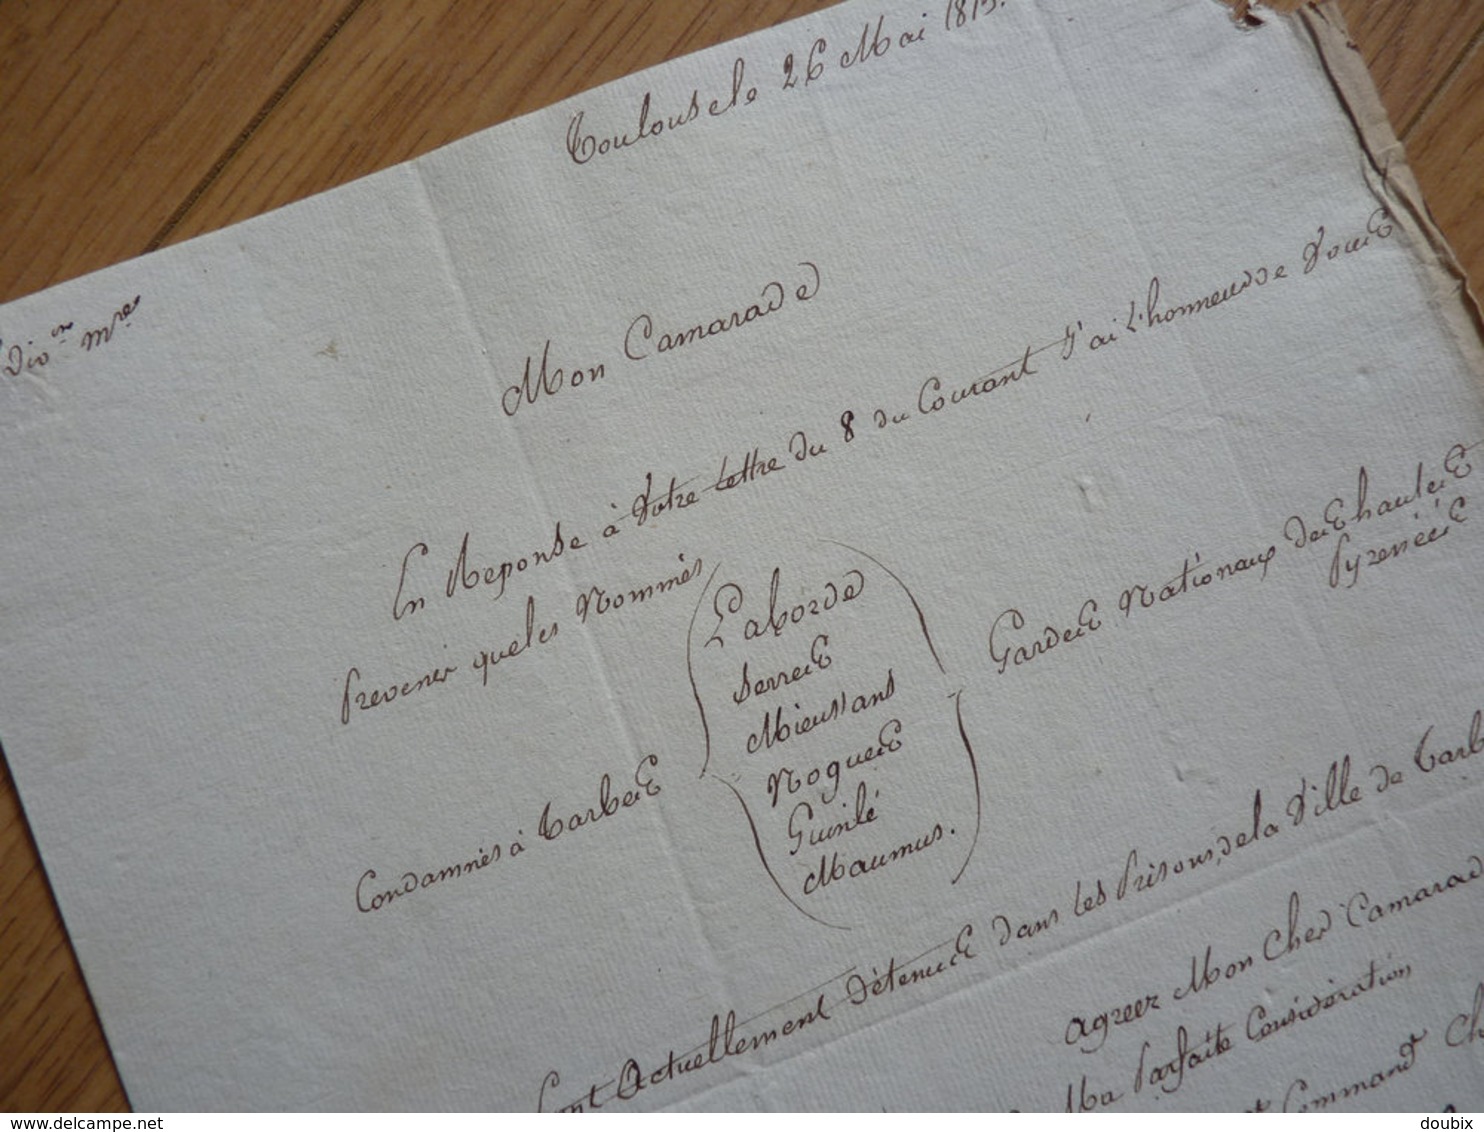 Toulouse le 26 Mai 1813.
Divon Mre
Mon Camarade
En Reponse à Votre Lettre du 8 du Courant J'ai L'honneur de Vous
Prevenir que les Nommés
Laborde
Serres
Mieussans
Nogues
Guinlé
Maumus.
Condamnés à Tarbes
Gardes Nationaux des hautes
Pyrenées
sont Actuellement Détenus dans Les Prisons de la Ville de Tarb
agreer Mon Cher Camarad
Ma Parfaite Considération
Command Ch
delcampe.net
doubix